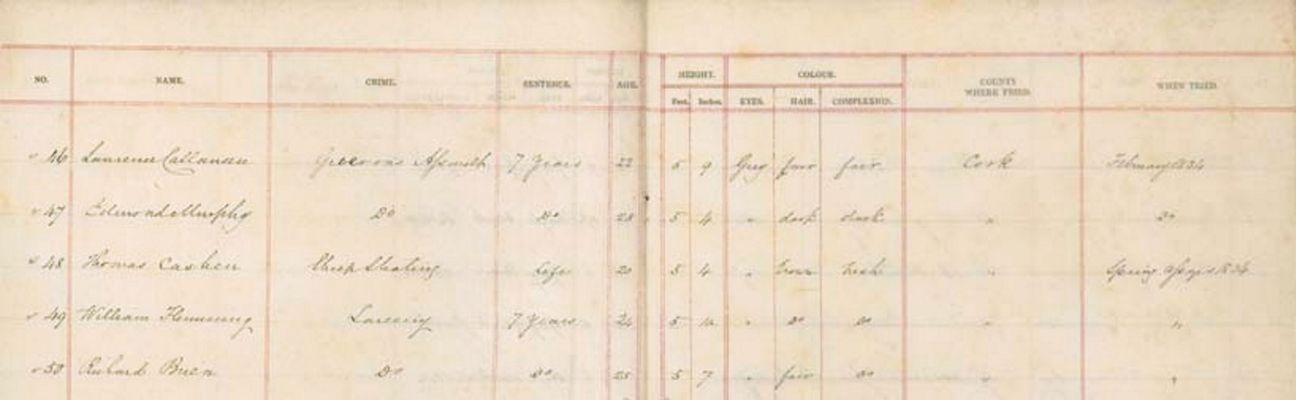 NO. NAME. CRIME. SENTENCE. AGE. HEIGHT. COLOUR. COUNTY WHERE TRIED. WHEN TRIED.
Feet. Inches. EYES. HAIR. COMPLEXION.
46 Laurence Callanan Greevous Assault 7 Years 22 5 9 Grey fair fair Cork February 1834
47 Edmond Murphy Do Do 28 5 4 " dark dark " Do
48 Thomas Cashen Sheep Stealing Life 20 5 4 " brown fresh " Spring Assizes 1834
49 William Flemming Larceny 7 Years 24 5 " Do Do " "
50 Richard Brien Do Do 25 5 7 " fair Do " "